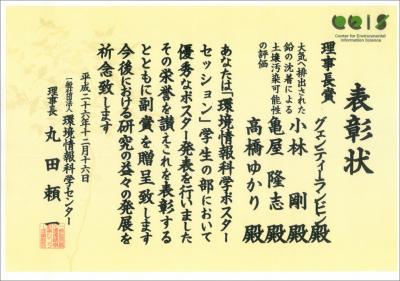 CEIS
Center for Environmental
Information Science
表彰状
理事長賞
グェンティーランビン殿
小林 剛殿
亀屋 隆志殿
高橋ゆかり殿
大気へ排出された
鉛の沈着による
土壌汚染可能性
の評価
あなたは「環境情報科学ポスター
セッション」学生の部において
優秀なポスター発表を行いました
その栄誉を讃えこれを表彰する
とともに副賞を贈呈致します
今後における研究の益々の発展を
祈念致します
平成二十六年十二月十六日
一般社団法人環境情報科学センター
理事長 丸田頼一